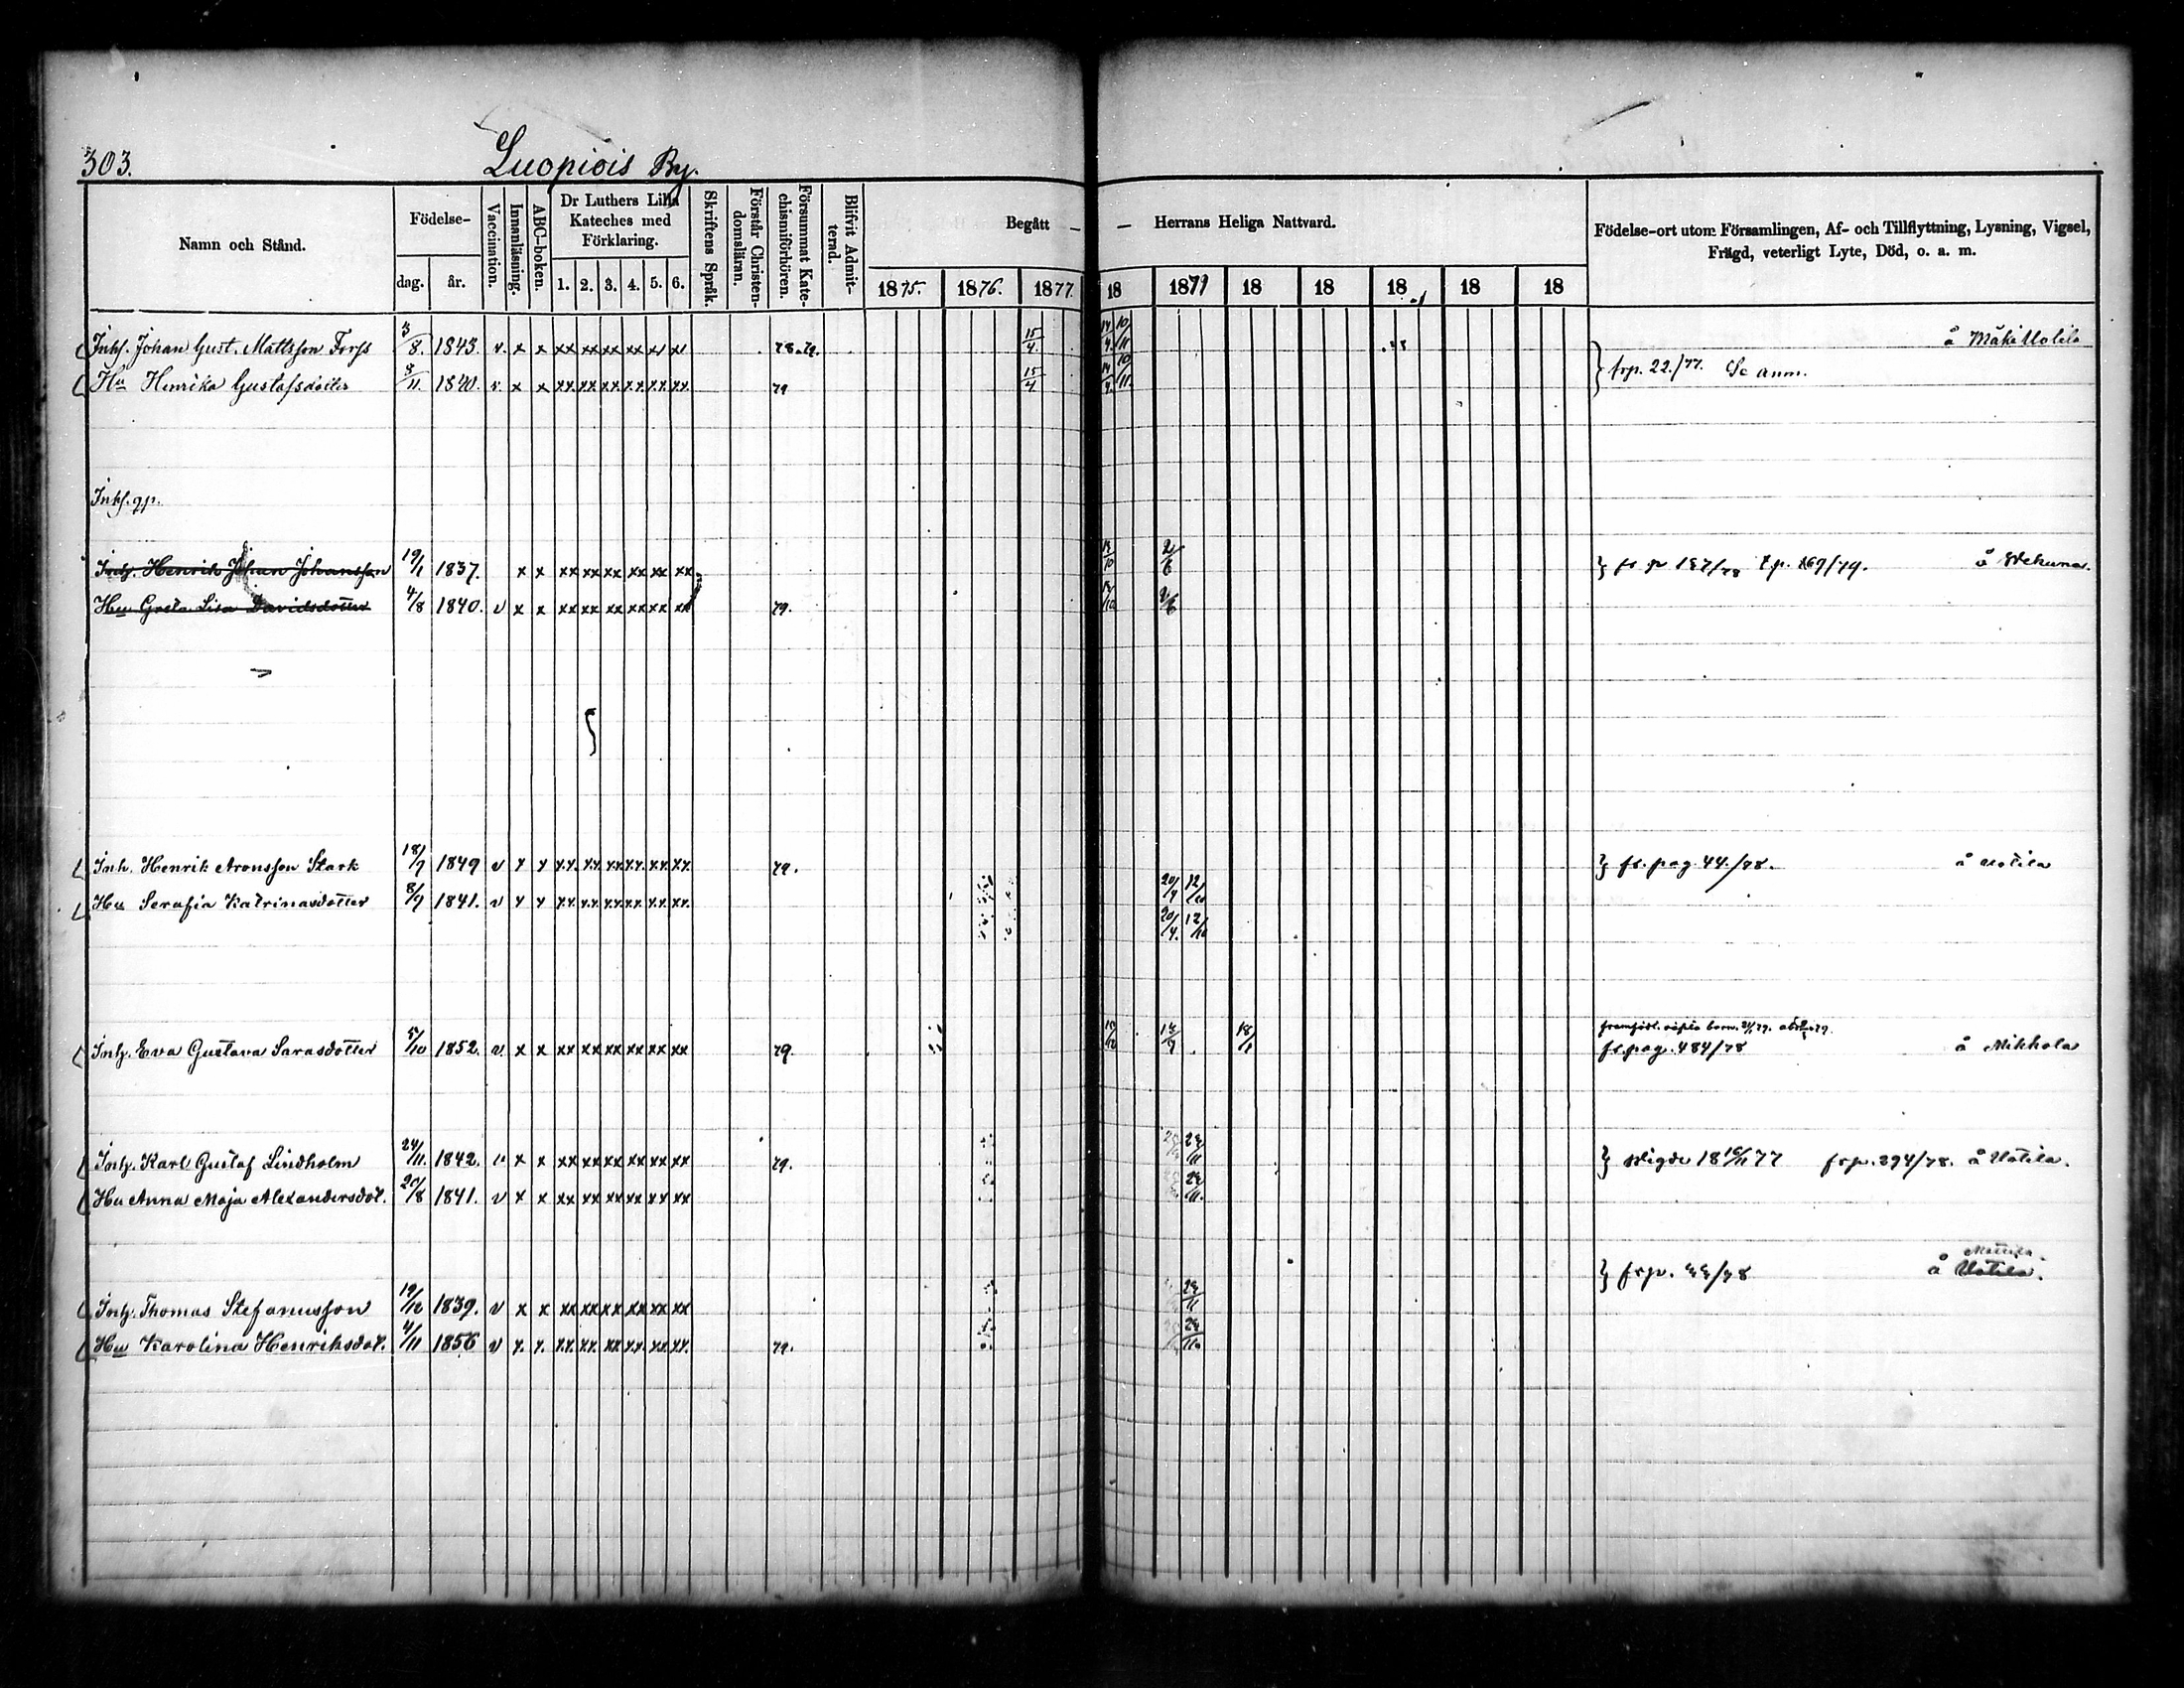 303. Luopiois By.
Namn och Stånd. Födelse- dag. år. Vaccination. Innanläsning. ABC-boken. Dr Luthers Lilla Kateches med Förklaring. 1. 2. 3. 4. 5. 6. Skriftens Språk. Förstår Christendomsläran. Försummat Katechismiförhören. Blifvit Admitterad. Begått — — Herrans Heliga Nattvard. 1875. 1876. 1877. 18 1879 18 18 18 18 18 Födelse-ort utom Församlingen, Af- och Tillflyttning, Lysning, Vigsel, Frägd, veterligt Lyte, Död, o. a. m.
Inhs. Johan Gust. Mattsson Forss 3/8. 1843. v. x x xx xx xx xx xx xx 78.79. 15/4. 14/4. 10/11 å Mäki Uotila
Hu Henrika Gustafsdotter 8/11. 1840. v. x x xx xx xx xx xx xx 79 15/4 14/4. 10/11. } frp. 22./77. Se anm.
Inhs. gp.
Inhs. Henrik Johan Johansson 19/1 1837. x x xx xx xx xx xx xx /10 2/6 } fr p 187/78 T.p. 169/79.
Hu Greta Lisa Davidsdotter 4/8 1840. v x x xx xx xx xx xx xx 79. /10 2/6
Inh. Henrik Aronsson Stark 18/7 1849 v x x xx xx xx xx xx xx 79. 20/4 12/10 } fr. pag. 44./78. å Uotila
Hu Serafia Katrinasdotter 8/7 1841. v x x xx xx xx xx xx xx 20/4. 12/10
Inhs. Eva Gustava Sarasdotter 5/10 1852. v. x x xx xx xx xx xx xx 79. 18/1 fr. pag. 484/78 å Mikkola
Inhs. Karl Gustaf Lindholm 24/11. 1842. v x x xx xx xx xx xx xx 79. /11 } Vigde 18 /11 77 frp. 394/78. å Uotila.
Hu Anna Maja Alexandersdot. 20/8 1841. v x x xx xx xx xx xx xx /11.
Mattila.
} frp. /78 å Uotila.
Inhs. Thomas Stefanusson 19/12 1839. v x x xx xx xx xx xx xx /11
Hu Karolina Henriksdot. 4/11 1856 v x. x. xx xx xx xx xx xx. 79. /11.